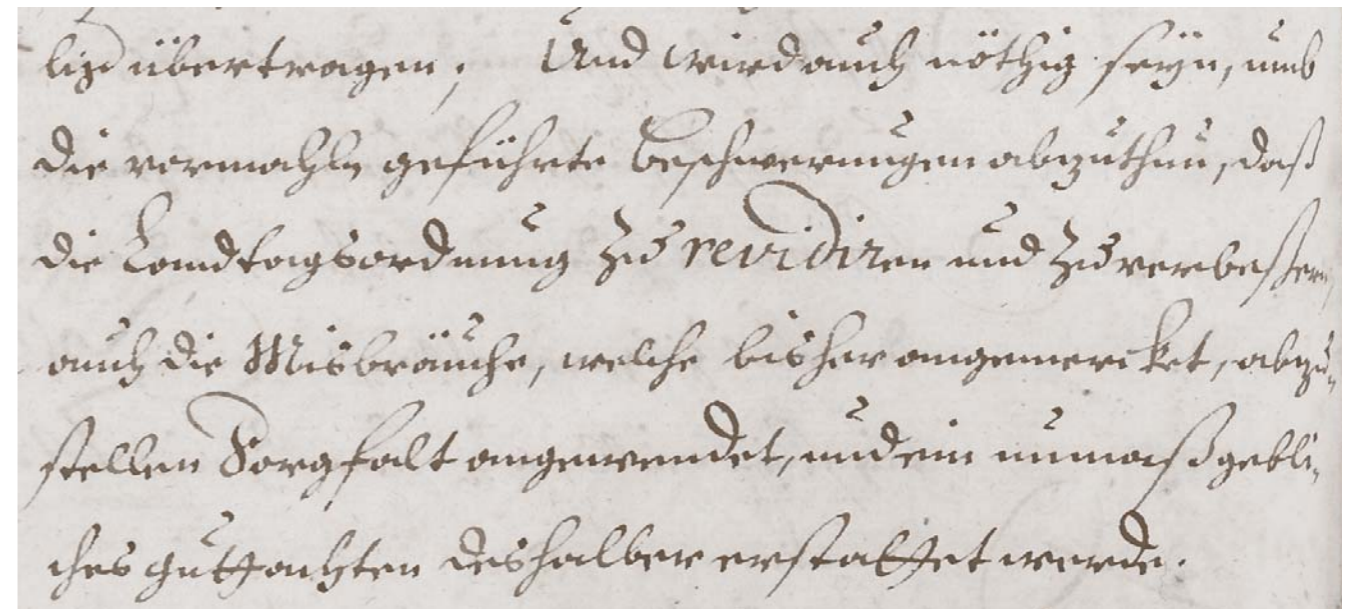 lig übertragen; Und wird auch nöthig seÿn, umb
die vormahls geführte Beschwerungen abzuthun, daß
die Landtagsordnung zu revidiren und zu verbeßern,
auch die Misbräuche, welche bisher angemercket, abzu-
stellen Sorgfalt angewendet, und ein unmaßgebli-
ches guttachten deshalber erstattet werde.